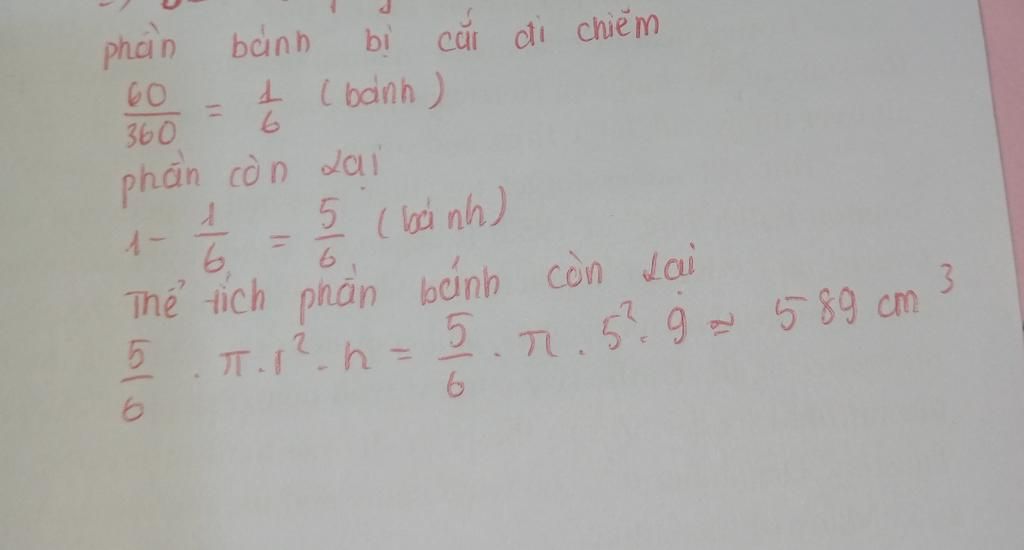 phần bánh bị cắt đi chiếm
60/360 = 1/6 (bánh)
phần còn lại
1 - 1/6 = 5/6 (bánh)
Thể tích phần bánh còn lại
5/6 . π . r² . h = 5/6 . π . 5² . 9 ≈ 589 cm³